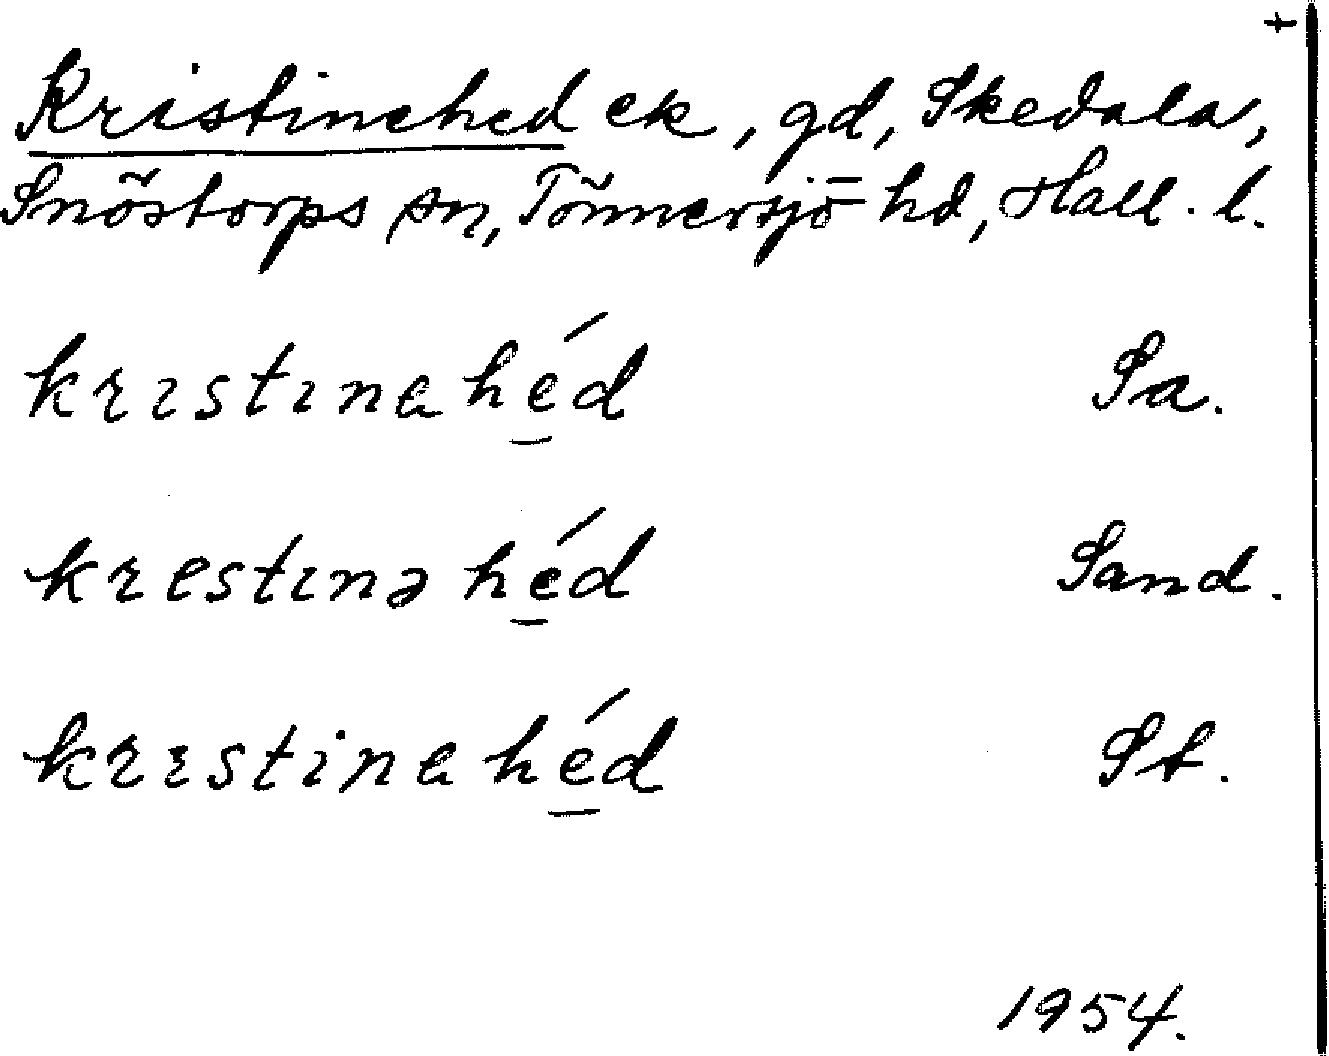 +
Kristinehed ek, gd, Skedala,
Snöstorps sn, Tönnersjö hd, Hall. l.
krıstınahé̲d Sa.
krestınə hé̲d Sand.
krıstina hé̲d St.
1954.